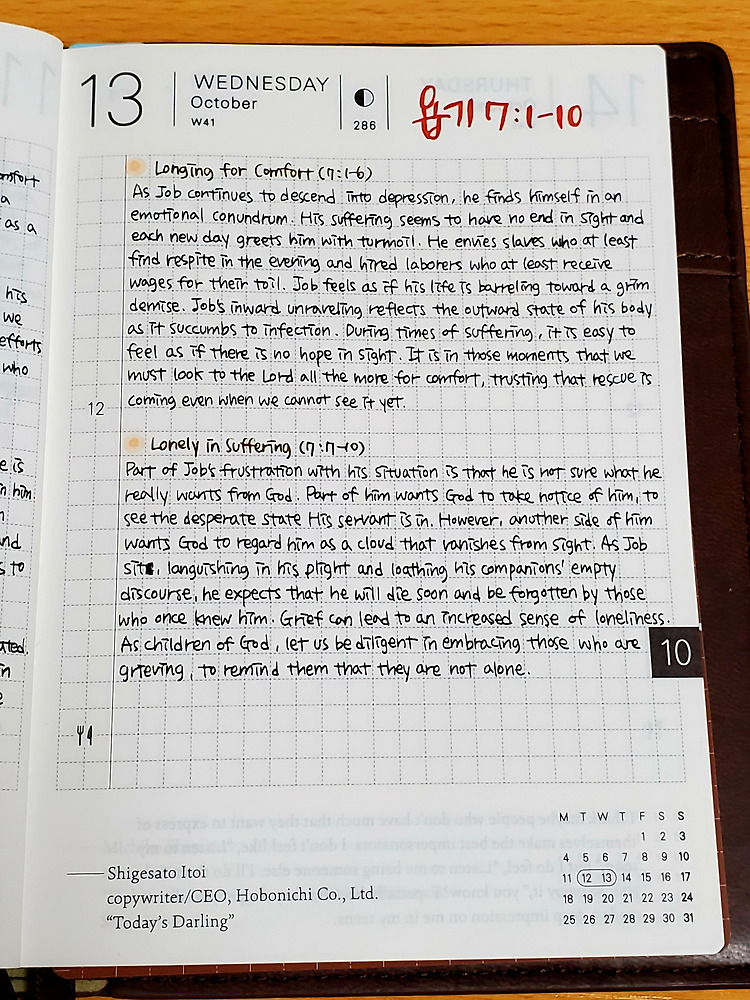 13
WEDNESDAY
October
W41
286
욥기 7:1-10
Longing for Comfort (7:1-6)
As Job continues to descend into depression, he finds himself in an
emotional conundrum. His suffering seems to have no end in sight and
each new day greets him with turmoil. He envies slaves who at least
find respite in the evening and hired laborers who at least receive
wages for their toil. Job feels as if his life is barreling toward a grim
demise. Job's inward unraveling reflects the outward state of his body
as it succumbs to infection. During times of suffering, it is easy to
feel as if there is no hope in sight. It is in those moments that we
must look to the Lord all the more for comfort, trusting that rescue is
12
coming even when we cannot see it yet.
Lonely in Suffering (7:7-10)
Part of Job's frustration with his situation is that he is not sure what he
really wants from God. Part of him wants God to take notice of him, to
see the desperate state His servant is in. However, another side of him
wants God to regard him as a cloud that vanishes from sight. As Job
sits, languishing in his plight and loathing his companions' empty
discourse, he expects that he will die soon and be forgotten by those
who once knew him. Grief can lead to an increased sense of loneliness.
As children of God, let us be diligent in embracing those who are
10
grieving, to remind them that they are not alone.
Shigesato Itoi
copywriter/CEO, Hobonichi Co., Ltd.
"Today's Darling"
M T W T F S S
1 2 3
4 5 6 7 8 9 10
11 12 13 14 15 16 17
18 19 20 21 22 23 24
25 26 27 28 29 30 31
mfort
a
as a
his
we
efforts
who
e is
n him
nd
s to
ated.
in
e